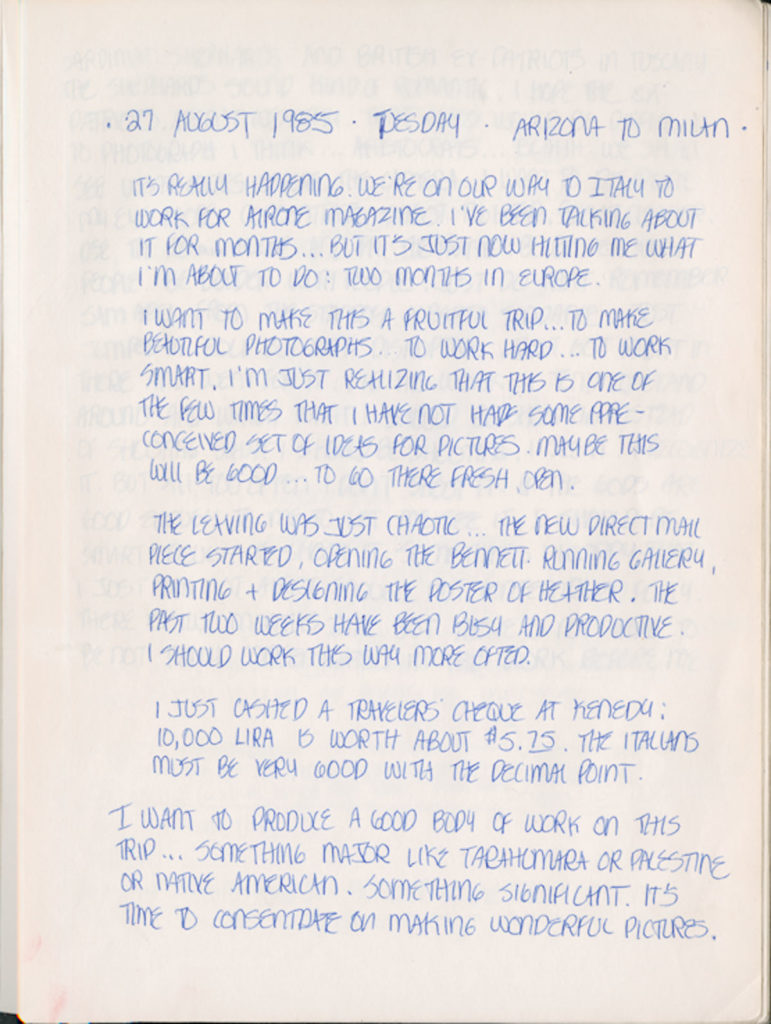 · 27 AUGUST 1985 · TUESDAY · ARIZONA TO MILAN ·
IT'S REALLY HAPPENING. WE'RE ON OUR WAY TO ITALY TO
WORK FOR AIRONE MAGAZINE. I'VE BEEN TALKING ABOUT
IT FOR MONTHS... BUT IT'S JUST NOW HITTING ME WHAT
I'M ABOUT TO DO: TWO MONTHS IN EUROPE.
I WANT TO MAKE THIS A FRUITFUL TRIP... TO MAKE
BEAUTIFUL PHOTOGRAPHS... TO WORK HARD... TO WORK
SMART. I'M JUST REALIZING THAT THIS IS ONE OF
THE FEW TIMES THAT I HAVE NOT HAD SOME PRE-
CONCEIVED SET OF IDEAS FOR PICTURES. MAYBE THIS
WILL BE GOOD... TO GO THERE FRESH, OPEN.
THE LEAVING WAS JUST CHAOTIC... THE NEW DIRECT MAIL
PIECE STARTED, OPENING THE BENNETT. RUNNING GALLERY,
PRINTING + DESIGNING THE POSTER OF HEATHER. THE
PAST TWO WEEKS HAVE BEEN BUSY AND PRODUCTIVE.
I SHOULD WORK THIS WAY MORE OFTEN.
I JUST CASHED A TRAVELERS' CHEQUE AT KENEDY:
10,000 LIRA IS WORTH ABOUT $5.25. THE ITALIANS
MUST BE VERY GOOD WITH THE DECIMAL POINT.
I WANT TO PRODUCE A GOOD BODY OF WORK ON THIS
TRIP... SOMETHING MAJOR LIKE TARAHUMARA OR PALESTINE
OR NATIVE AMERICAN. SOMETHING SIGNIFICANT. IT'S
TIME TO CONSENTRATE ON MAKING WONDERFUL PICTURES.